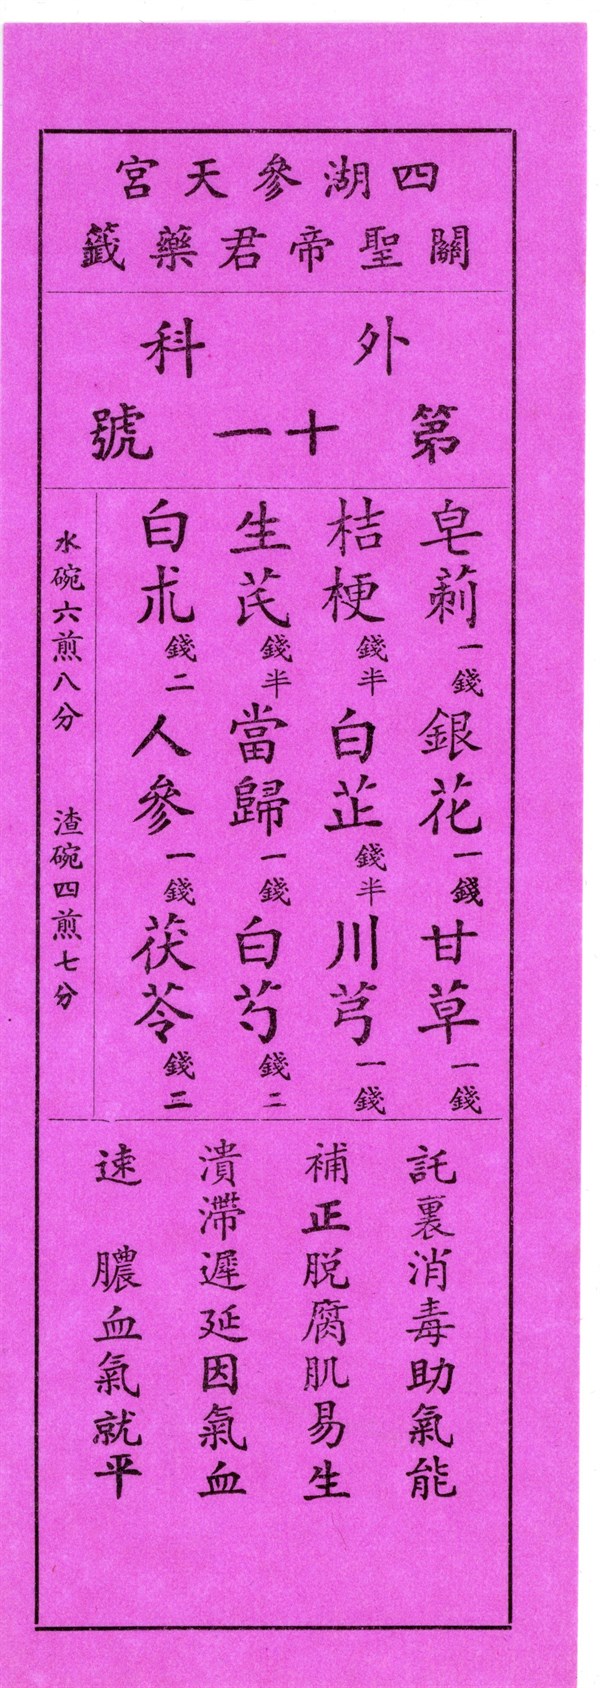 四湖參天宮
關聖帝君藥籤
外科
第十一號
皂莿一錢 銀花一錢 甘草一錢
桔梗錢半 白芷錢半 川芎一錢
生芪錢半 當歸一錢 白芍錢二
白朮錢二 人參一錢 茯苓錢二
水碗六煎八分 渣碗四煎七分
託裏消毒助氣能
補正脱腐肌易生
潰滯遲延因氣血
速 膿血氣就平